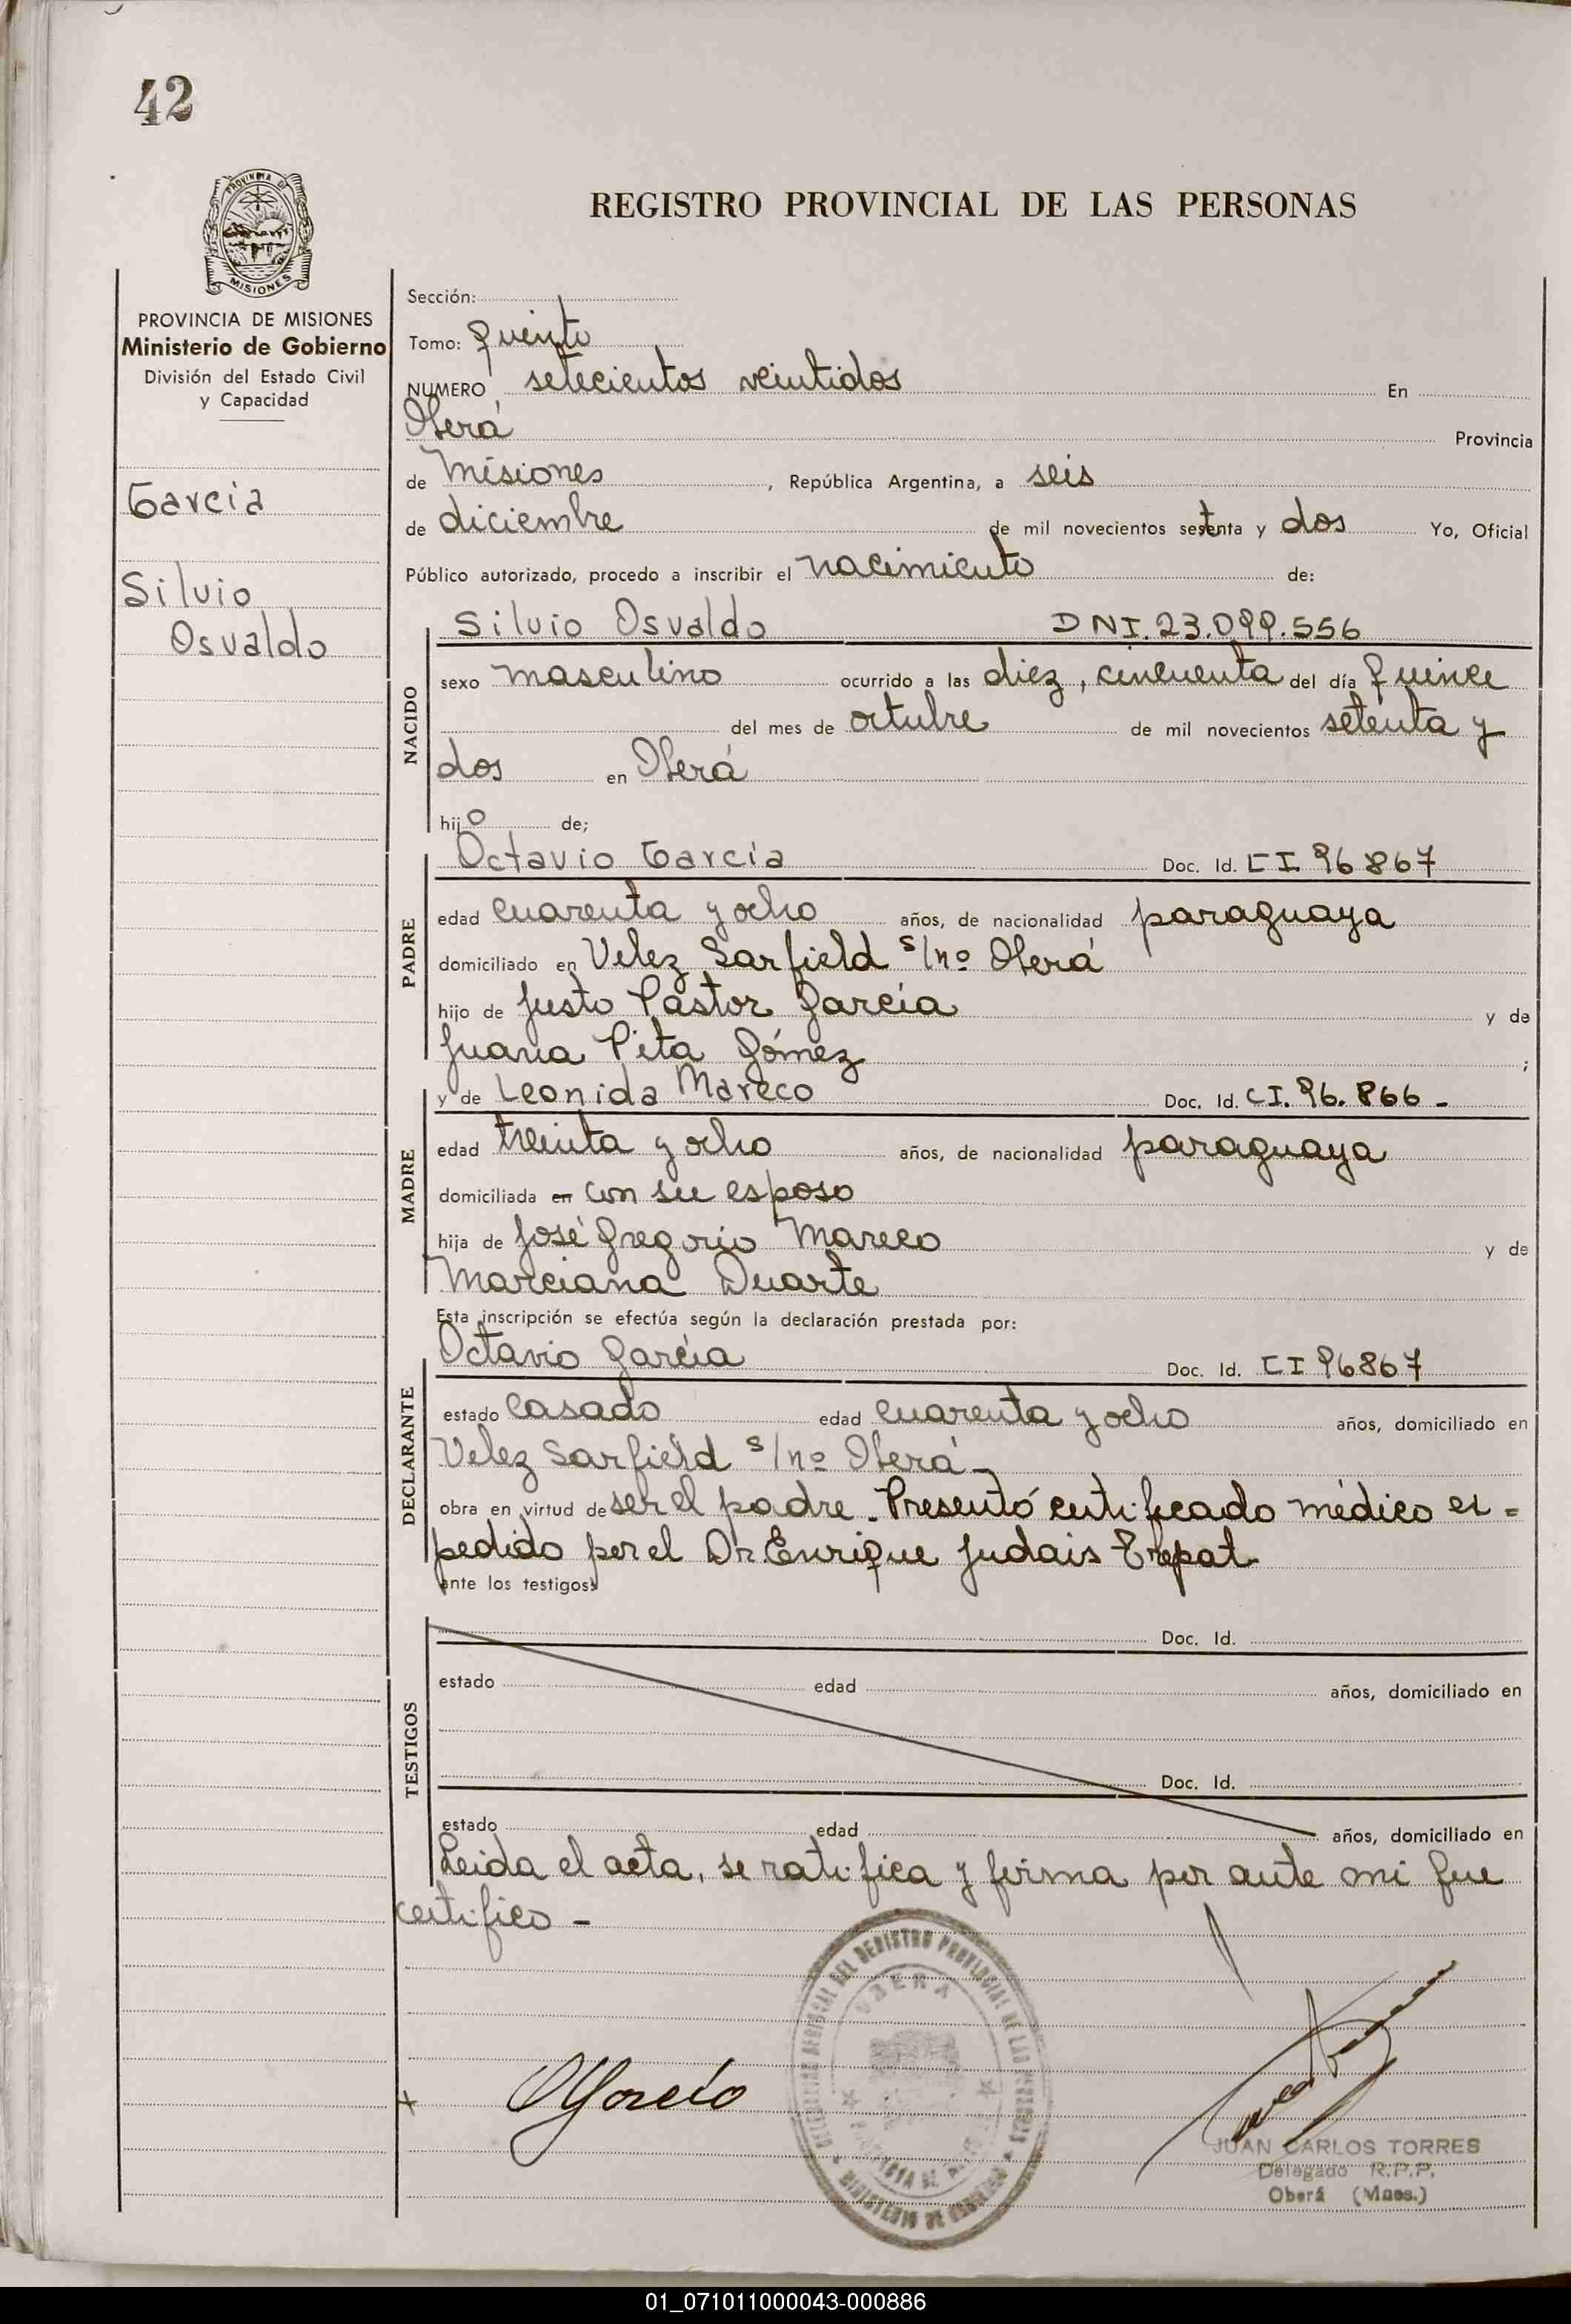 42
PROVINCIA DE
MISIONES
REGISTRO PROVINCIAL DE LAS PERSONAS
PROVINCIA DE MISIONES
Ministerio de Gobierno
División del Estado Civil
y Capacidad
Garcia
Silvio
Osvaldo
Sección:
Tomo: Quinto
NUMERO setecientos veintidos En
Oberá Provincia
de Misiones, República Argentina, a seis
de diciembre de mil novecientos setenta y dos Yo, Oficial
Público autorizado, procedo a inscribir el nacimiento de:
NACIDO
Silvio Osvaldo DNI. 23.099.556
sexo masculino ocurrido a las diez, cincuenta del día quince
del mes de octubre de mil novecientos setenta y
dos en Oberá
hijo de;
PADRE
Octavio Garcia Doc. Id. CI 96867
edad cuarenta y ocho años, de nacionalidad paraguaya
domiciliado en Velez Sarfield s/nº Oberá
hijo de Justo Pastor Garcia y de
Juana Pita Gómez ;
MADRE
y de Leonida Mareco Doc. Id. CI. 96.866-
edad treinta y ocho años, de nacionalidad paraguaya
domiciliada en con su esposo
hija de José Gregorio Mareco y de
Marciana Duarte
Esta inscripción se efectúa según la declaración prestada por:
DECLARANTE
Octavio Garcia Doc. Id. CI 96867
estado casado edad cuarenta y ocho años, domiciliado en
Velez Sarfield s/nº Oberá-
obra en virtud de ser el padre. Presentó certificado médico ex=
pedido por el Dr. Enrique Judais Trepat
ante los testigos:
TESTIGOS
Doc. Id.
estado edad años, domiciliado en
Doc. Id.
estado edad años, domiciliado en
Leida el acta, se ratifica y firma por ante mi que
certifico-
DELEGACION REGIONAL DEL REGISTRO PROVINCIAL DE LAS PERSONAS
OBERA
PROVINCIA DE
MINISTERIO DE GOBIERNO
x OGarcia
JUAN CARLOS TORRES
Delegado R.P.P.
Oberá (Mnes.)
01_071011000043-000886